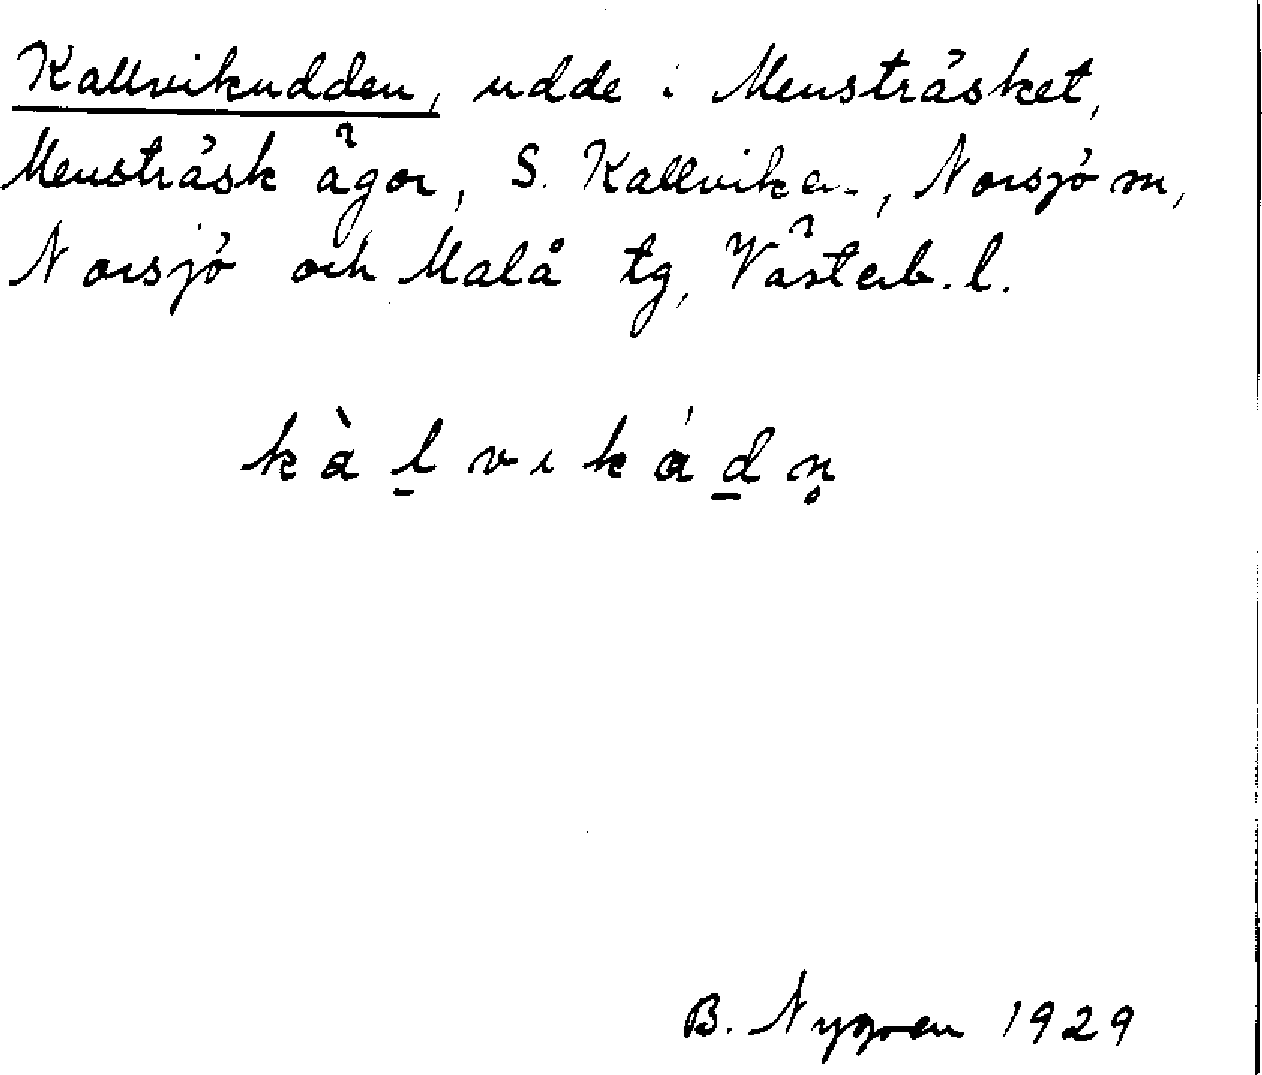 Kallvikudden, udde i Mensträsket,
Mensträsk ägor, S. Kallvika-, Norsjö sn,
Norsjö och Malå tg, Västerb. l.
kàl̠vikád̠n̥
B. Nygren 1929